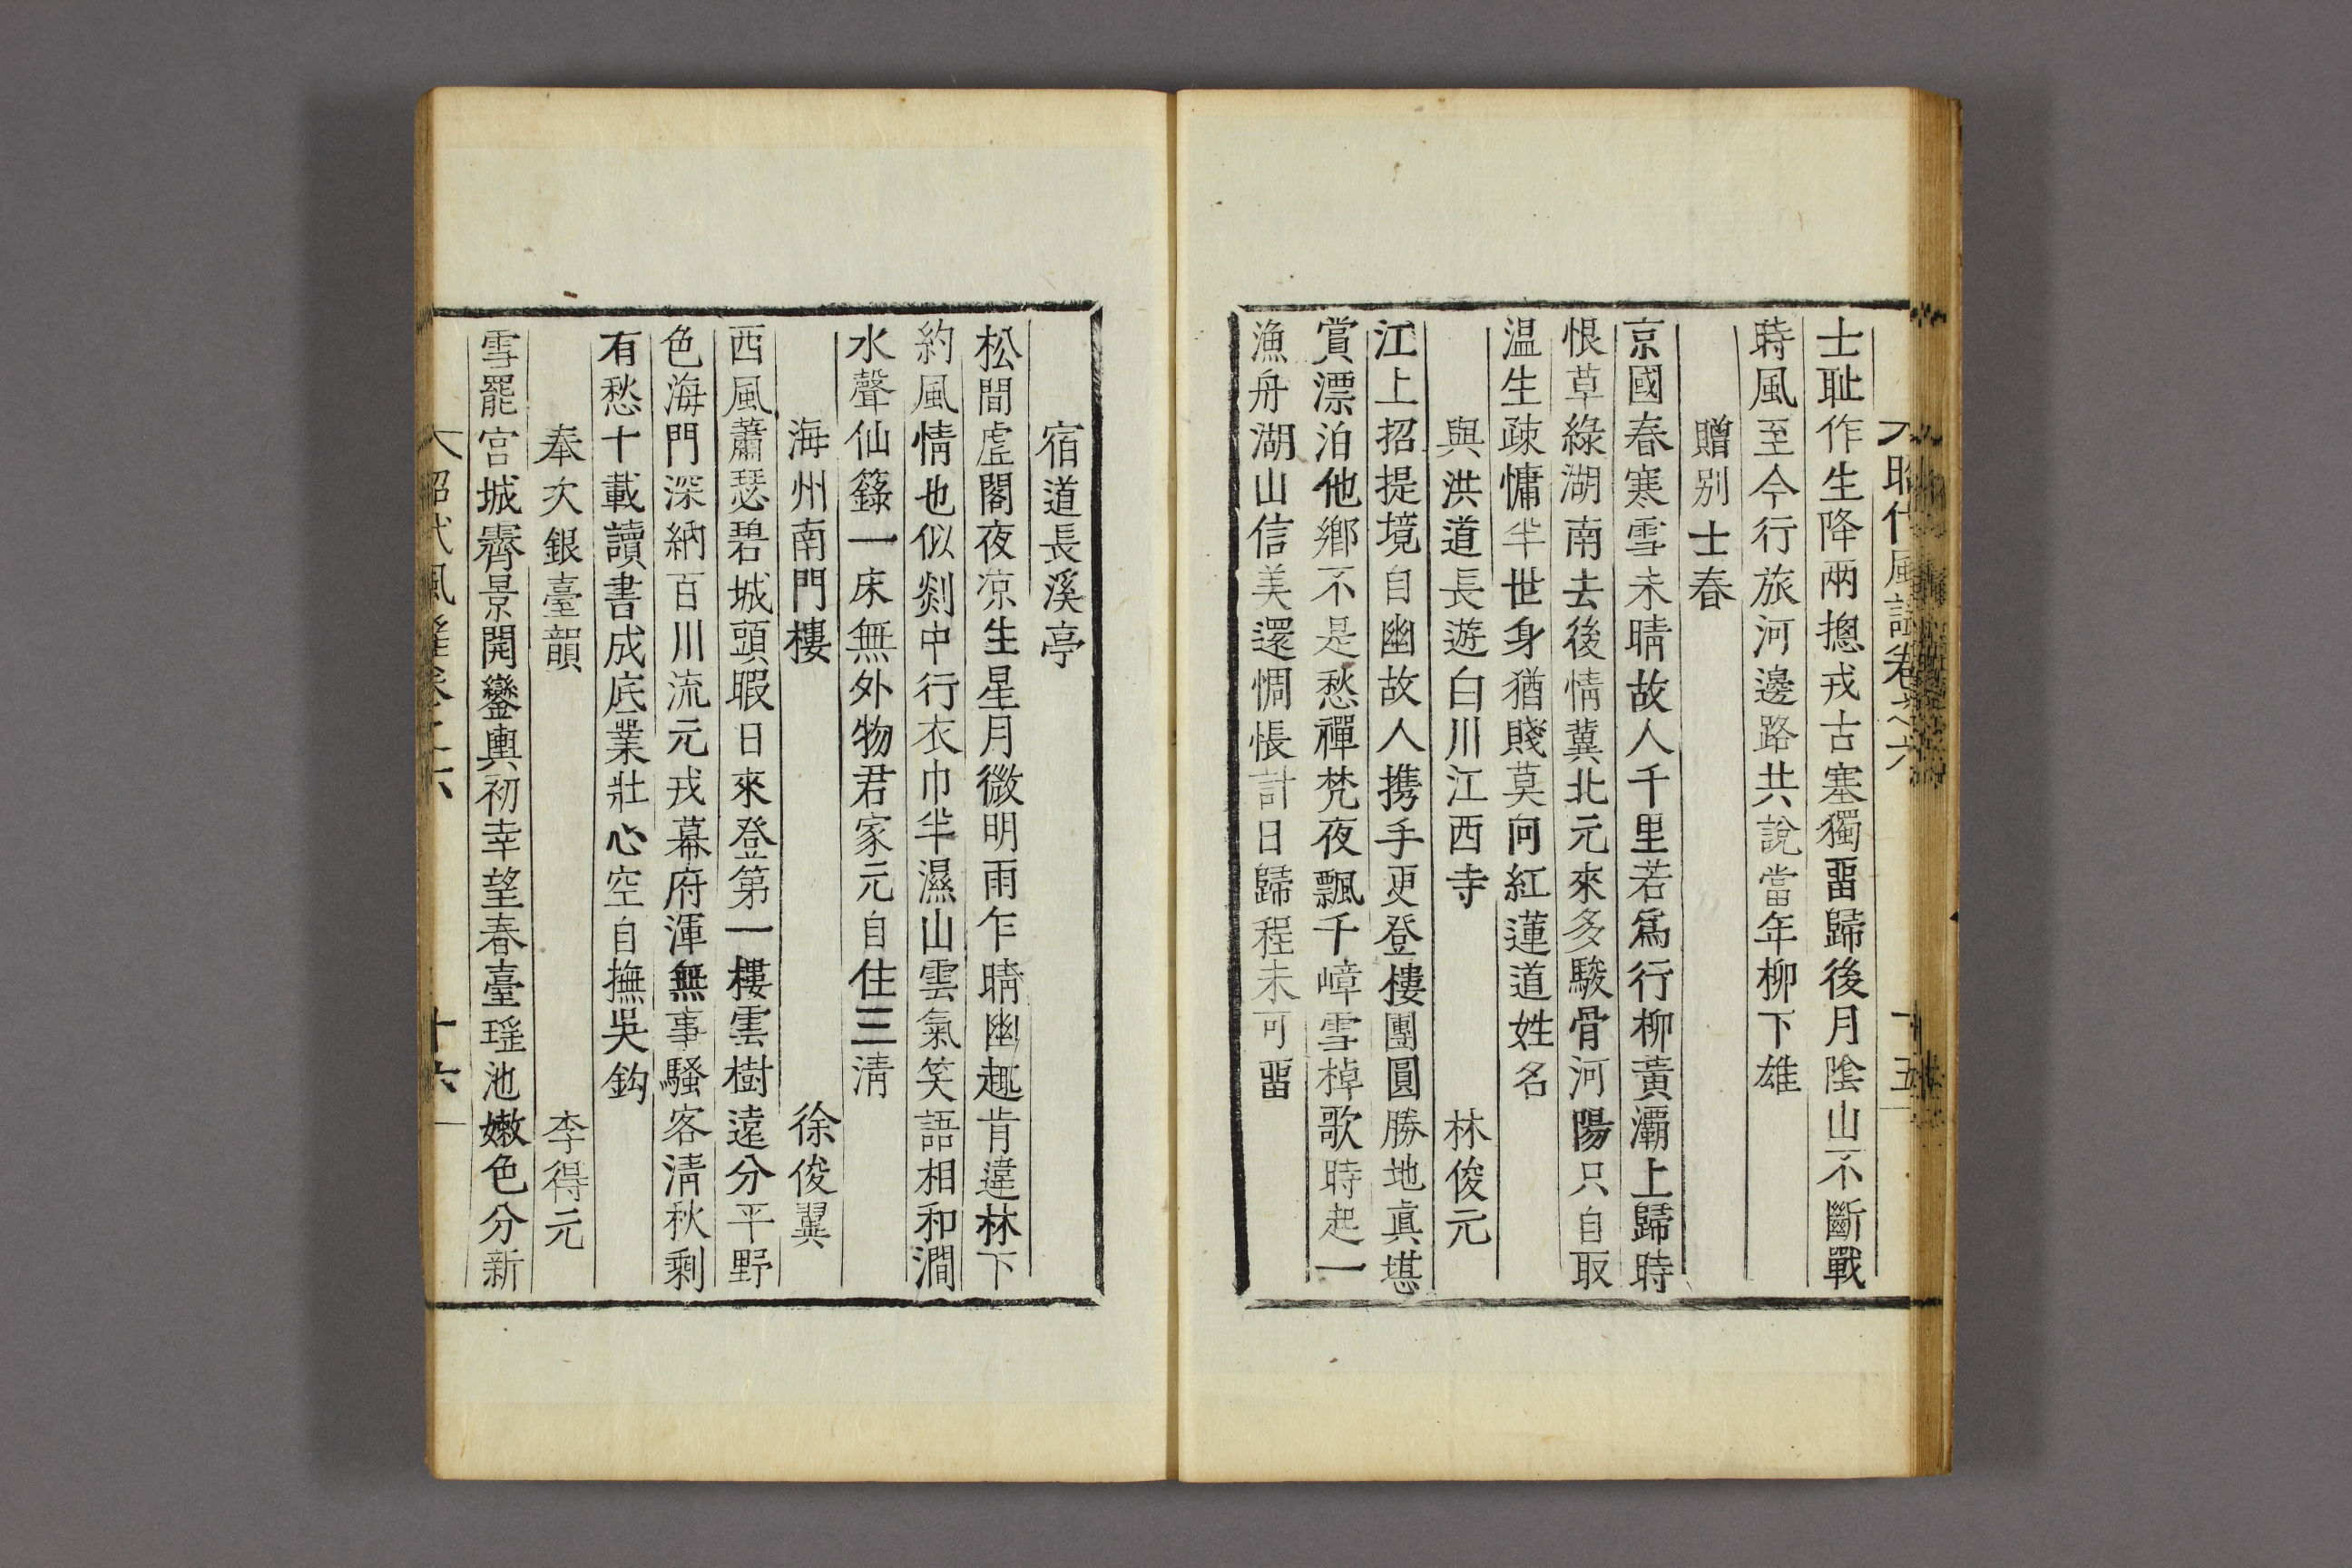 昭代風謠卷之六
十五
士耻作生降兩摠戎古塞獨畱歸後月陰山不斷戰
時風至今行旅河邊路共說當年柳下雄
贈別士春
京國春寒雪未晴故人千里若爲行柳黃灞上歸時
恨草綠湖南去後情冀北元來多駿骨河陽只自取
温生疎慵半世身猶賤莫向紅蓮道姓名
與洪道長遊白川江西寺
林俊元
江上招提境自幽故人携手更登樓團圓勝地眞堪
賞漂泊他鄉不是愁禪梵夜飄千嶂雪棹歌時起一
漁舟湖山信美還惆悵計日歸程未可畱
宿道長溪亭
松間虛閣夜凉生星月微明雨乍晴幽趣肯違林下
約風情也似剡中行衣巾半濕山雲氣笑語相和澗
水聲仙籙一床無外物君家元自住三淸
海州南門樓
徐俊翼
西風蕭瑟碧城頭暇日來登第一樓雲樹遠分平野
色海門深納百川流元戎幕府渾無事騷客淸秋剩
有愁十載讀書成底業壯心空自撫吳鈎
奉次銀臺韻
李得元
雪罷宮城霽景開鑾輿初幸望春臺瑤池嫩色分新
昭代風謠卷之六
十六